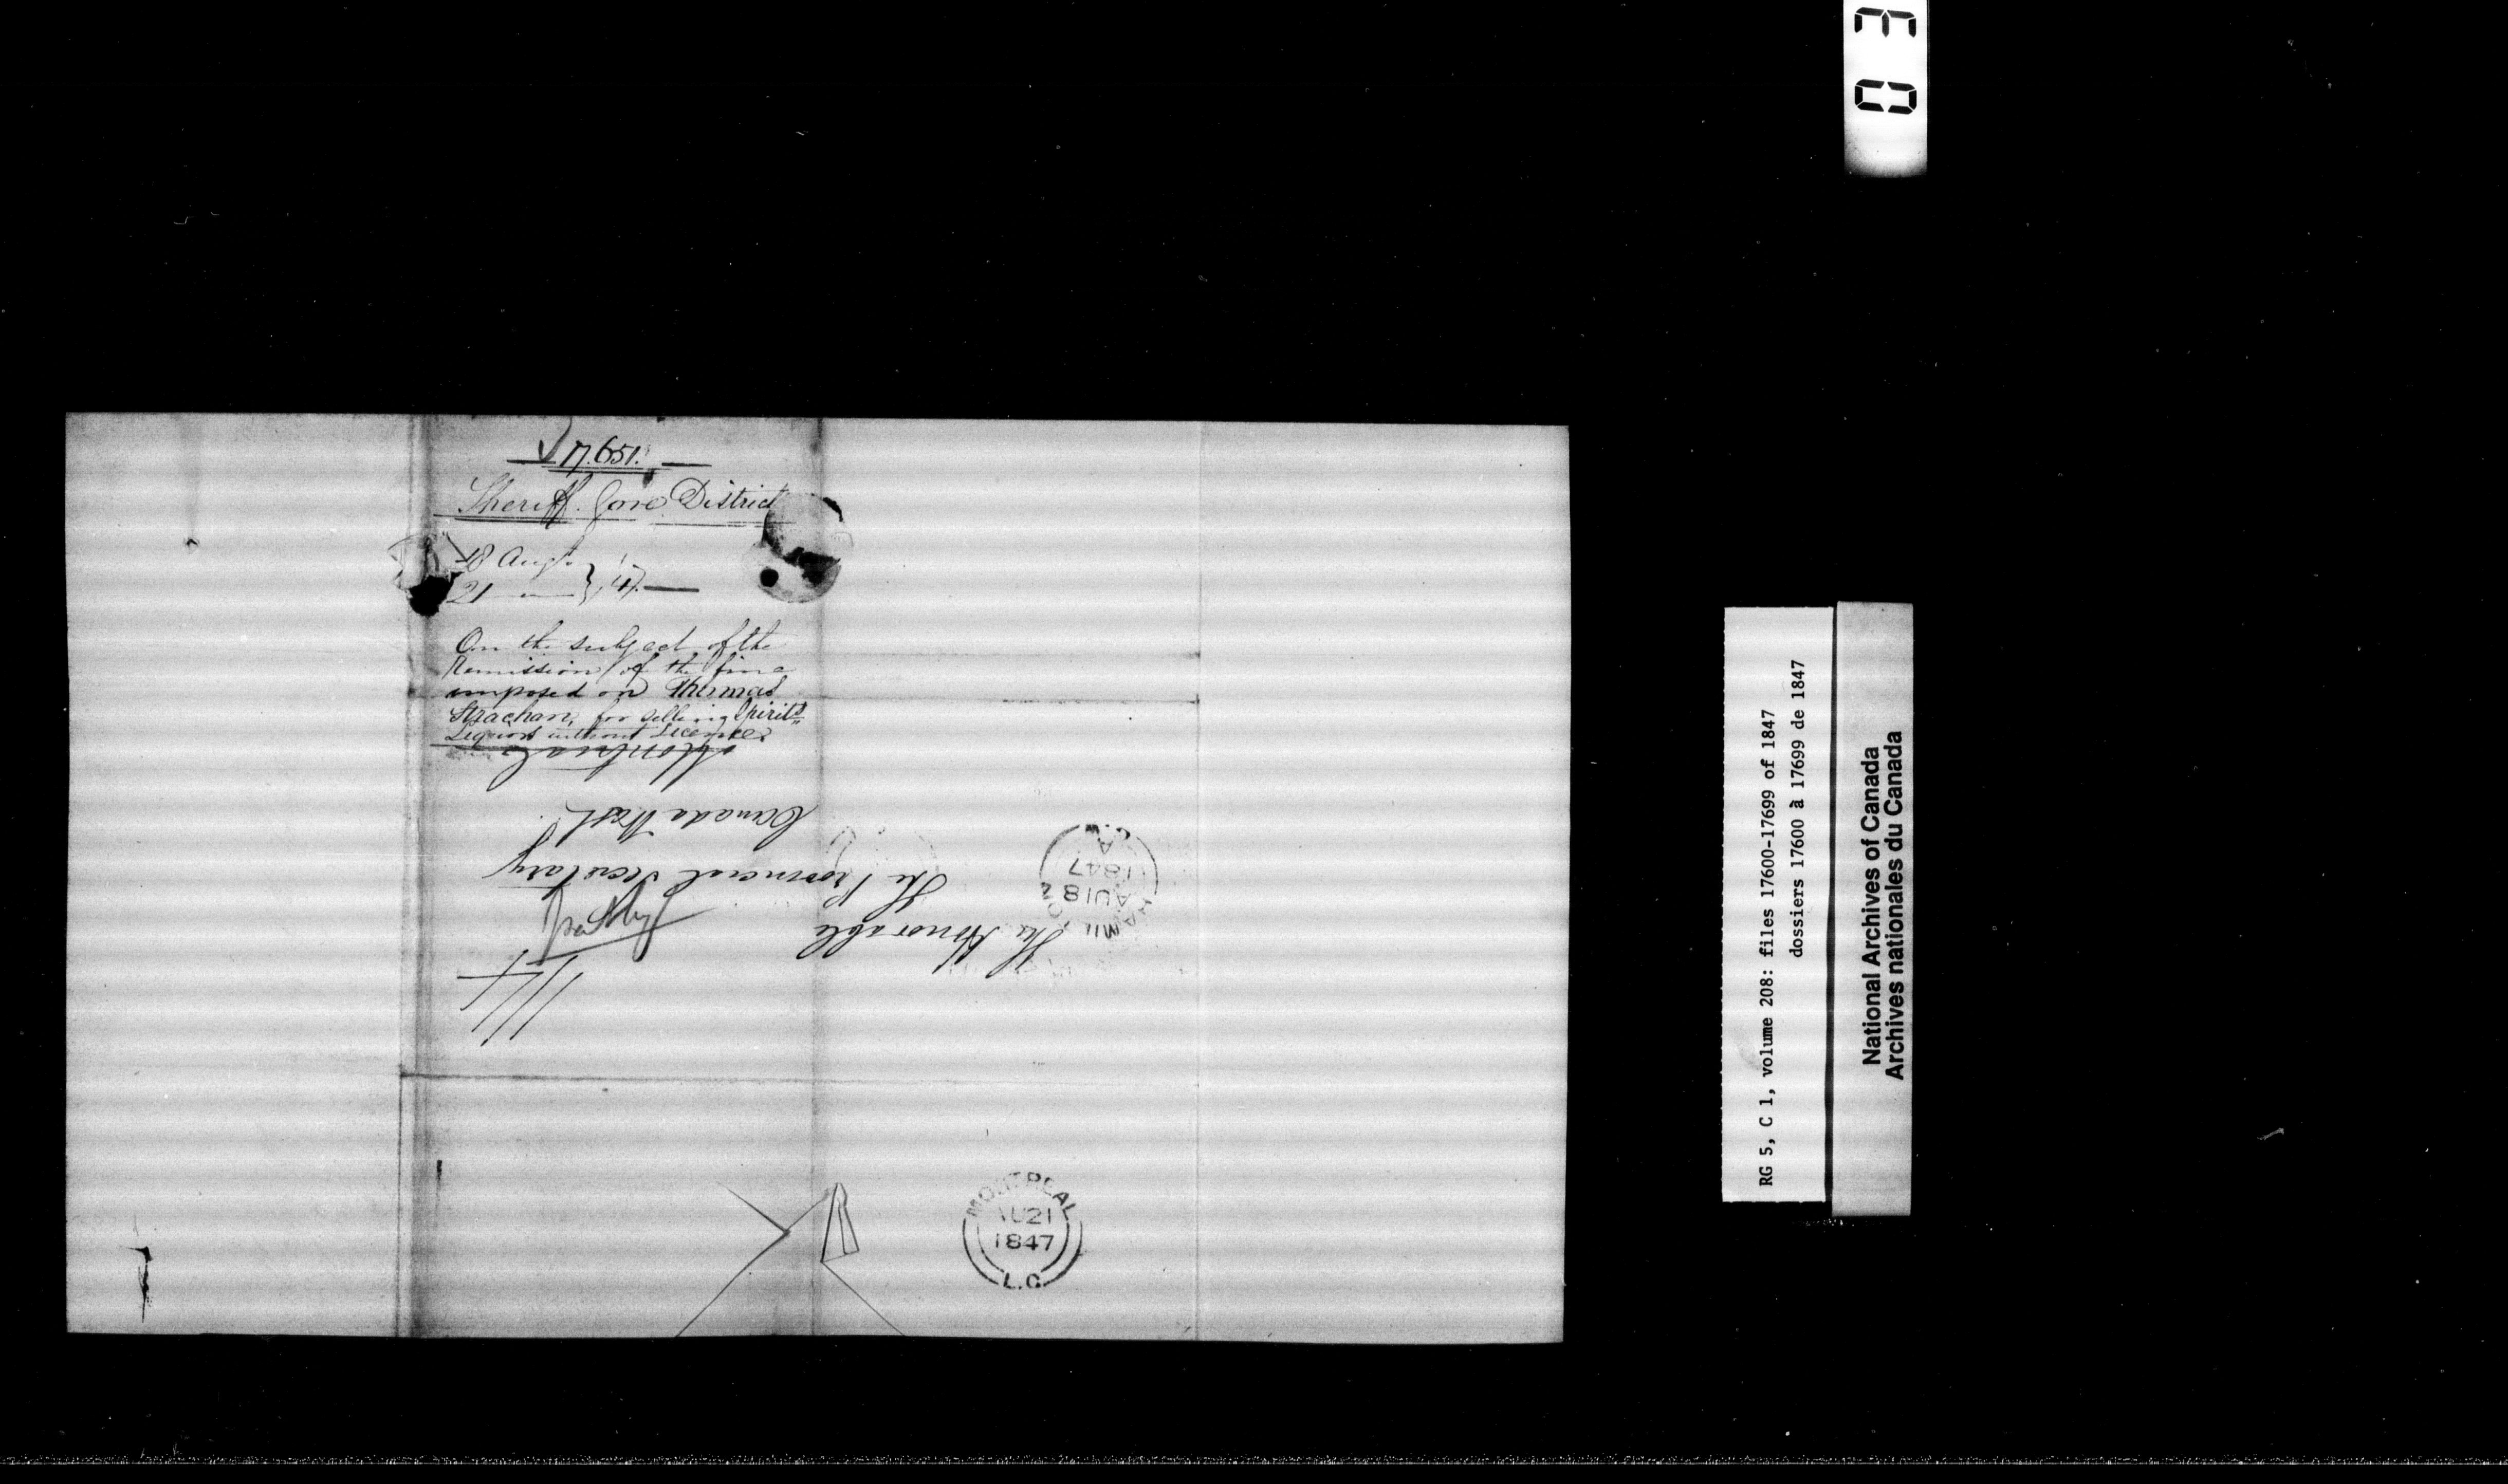 17.651.
Sheriff. Gore District
18 Augt.
21 — } '47 —
On the subject of the
Remission of the fine
imposed on Thomas
Strachan, for selling Spirits
Liquors without License.
The Honorable
The Provincial Secretary
Canada West
Montreal
HAMILTON
AU 18
1847
A
C.W
MONTREAL
AU 21
1847
L.C.
RG 5, C 1, volume 208: files 17600-17699 of 1847
dossiers 17600 à 17699 de 1847
National Archives of Canada
Archives nationales du Canada
03